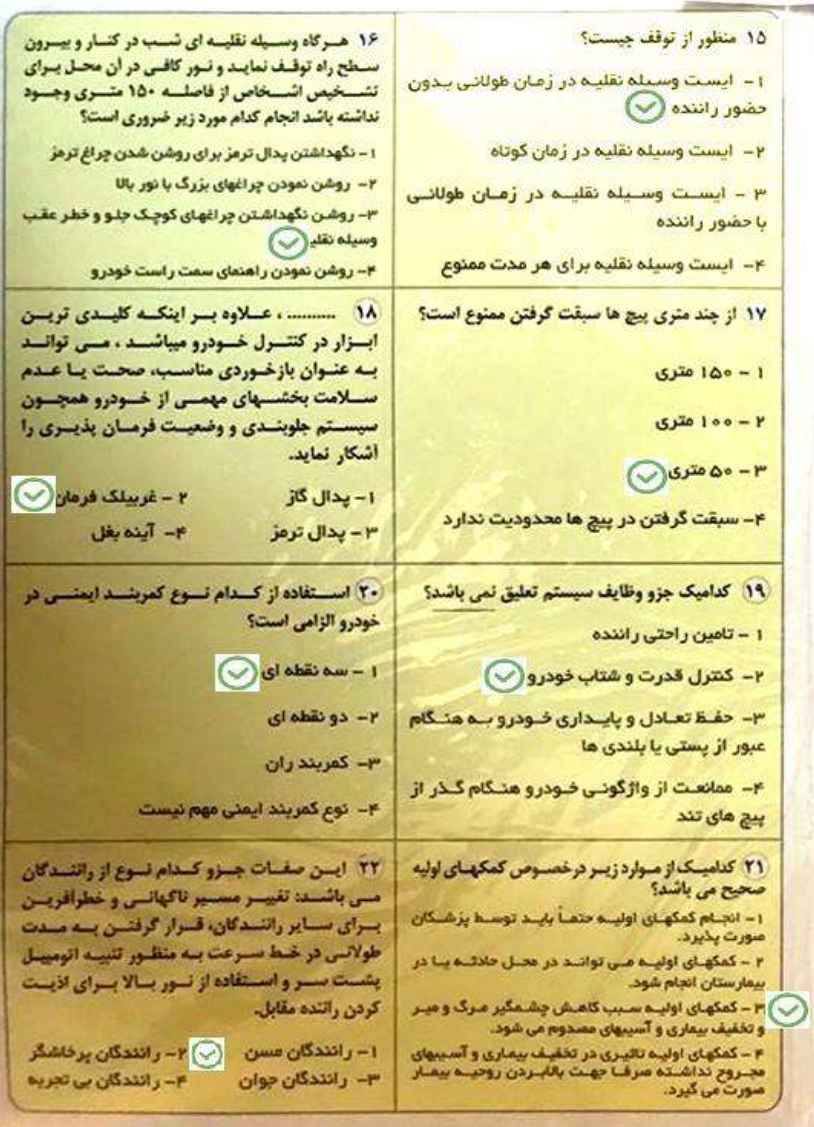 ۱۵ منظور از توقف چیست؟
۱- ایست وسیله نقلیه در زمان طولانی بدون
حضور راننده
۲- ایست وسیله نقلیه در زمان کوتاه
۳ - ایست وسیله نقلیه در زمان طولانی
با حضور راننده
۴- ایست وسیله نقلیه برای هر مدت ممنوع
۱۶ هرگاه وسیله نقلیه ای شب در کنار و بیرون
سطح راه توقف نماید و نور کافی در آن محل برای
تشخیص اشخاص از فاصله ۱۵۰ متری وجود
نداشته باشد انجام کدام مورد زیر ضروری است؟
۱- نگهداشتن پدال ترمز برای روشن شدن چراغ ترمز
۲- روشن نمودن چراغهای بزرگ با نور بالا
۳- روشن نگهداشتن چراغهای کوچک جلو و خطر عقب
وسیله نقلیه
۴- روشن نمودن راهنمای سمت راست خودرو
۱۷ از چند متری پیچ ها سبقت گرفتن ممنوع است؟
۱ - ۱۵۰ متری
۲ - ۱۰۰ متری
۳ - ۵۰ متری
۴- سبقت گرفتن در پیچ ها محدودیت ندارد
۱۸ .......... ، علاوه بر اینکه کلیدی ترین
ابزار در کنترل خودرو میباشد ، می تواند
به عنوان بازخوردی مناسب، صحت یا عدم
سلامت بخشهای مهمی از خودرو همچون
سیستم جلوبندی و وضعیت فرمان پذیری را
آشکار نماید.
۱- پدال گاز ۲ - غربیلک فرمان
۳ - پدال ترمز ۴- آینه بغل
۱۹ کدامیک جزو وظایف سیستم تعلیق نمی باشد؟
۱ - تامین راحتی راننده
۲- کنترل قدرت و شتاب خودرو
۳- حفظ تعادل و پایداری خودرو به هنگام
عبور از پستی یا بلندی ها
۴- ممانعت از واژگونی خودرو هنگام گذر از
پیچ های تند
۲۰ استفاده از کدام نوع کمربند ایمنی در
خودرو الزامی است؟
۱ - سه نقطه ای
۲- دو نقطه ای
۳- کمربند ران
۴- نوع کمربند ایمنی مهم نیست
۲۱ کدامیک از موارد زیر درخصوص کمکهای اولیه
صحیح می باشد؟
۱- انجام کمکهای اولیه حتماً باید توسط پزشکان
صورت پذیرد.
۲ - کمکهای اولیه می تواند در محل حادثه یا در
بیمارستان انجام شود.
۳ - کمکهای اولیه سبب کاهش چشمگیر مرگ و میر
و تخفیف بیماری و آسیبهای مصدوم می شود.
۴ - کمکهای اولیه تاثیری در تخفیف بیماری و آسیبهای
مجروح نداشته صرفا جهت بالابردن روحیه بیمار
صورت می گیرد.
۲۲ این صفات جزو کدام نوع از رانندگان
می باشد: تغییر مسیر ناگهانی و خطرآفرین
برای سایر رانندگان، قرار گرفتن به مدت
طولانی در خط سرعت به منظور تنبیه اتومبیل
پشت سر و استفاده از نور بالا برای اذیت
کردن راننده مقابل.
۱- رانندگان مسن ۲- رانندگان پرخاشگر
۳- رانندگان جوان ۴- رانندگان بی تجربه